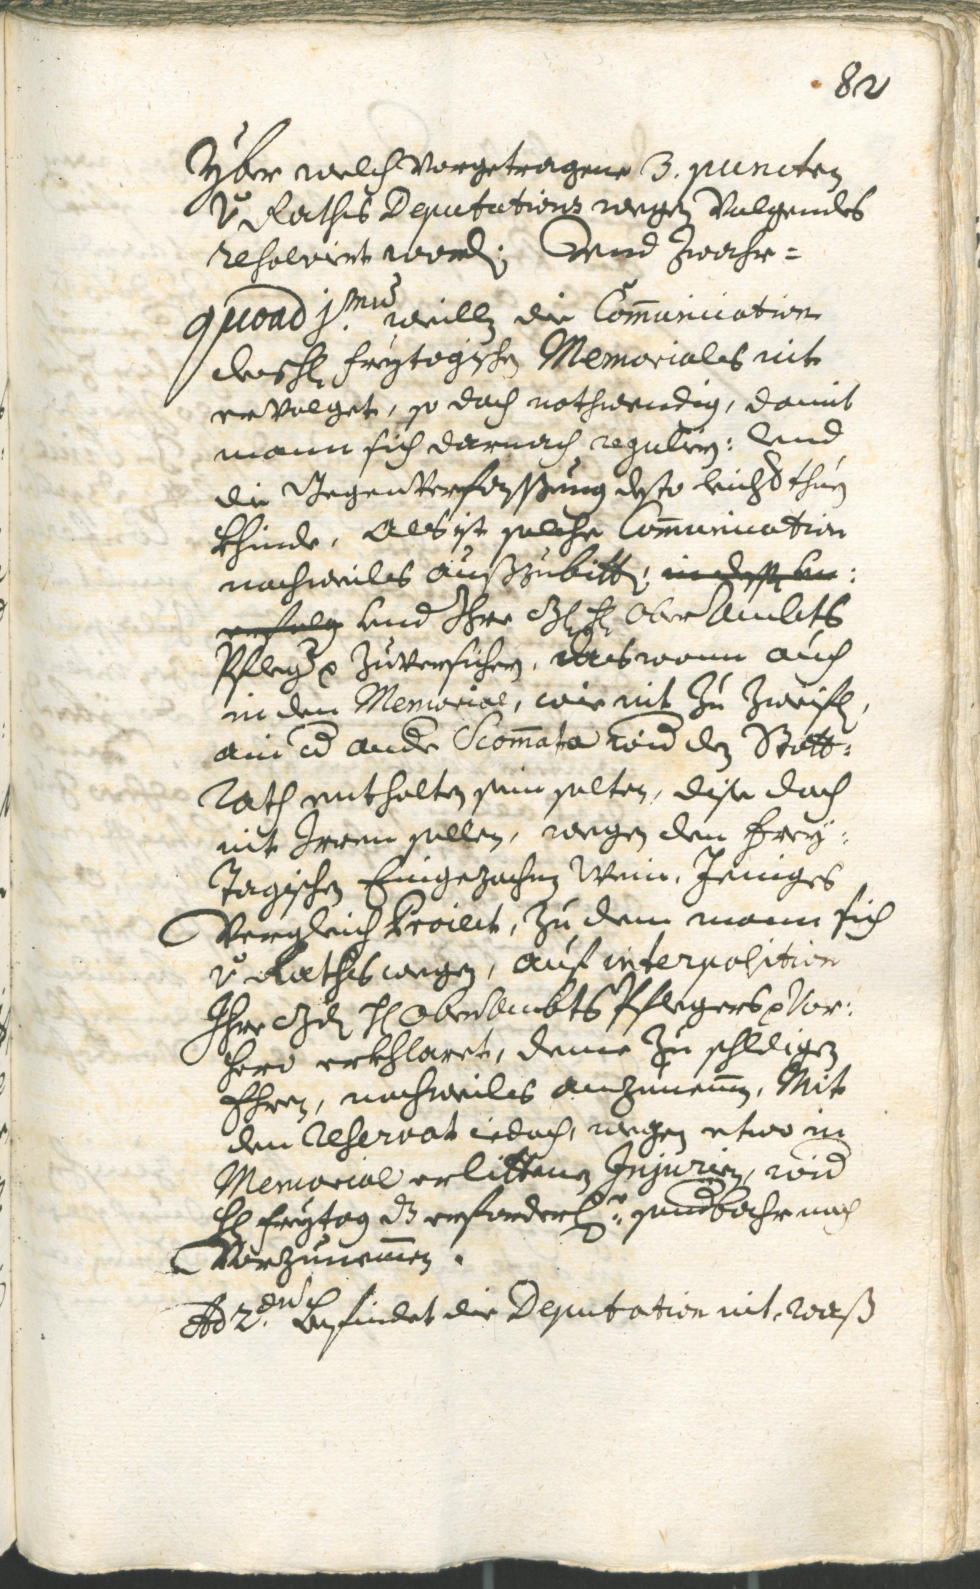 82
Yber welch vorgetragene 3. puncten
v. Raths Deputations wegen volgendes
resolvirt word; Und zwahr =
quoad j.mum weillen die Com̄unication
dess H. freytagischen Memoriales nit
ervolget, so doch nothwendig, damit
mann sich darnach regulirn: Und
die Gegenverfassung desto leichter thun
khinde, Als ist solche Com̄unication
nachmales außzubitten, in dessen
erfolg und Ihre H. Ober Ambts
Pfleger zuversichern, das wann auch
in dem Memorial, wie nit zu zweiflen,
ain und andre Scom̄ata wider den Statt=
Rath enthalten sein solten, dise doch
nit Irren sollen, wegen den frey=
Tagischen Eingezachen Wein, Jeniges
Vergleich Proiect, zu dem mann sich
v. Raths wegen, auf interposition
Ihre H. Ober Ambts Pflegers Vor=
hero erkhlaret, deme zu schldigen
Ehren, nachmales anzunem̄en, Mit
dem Reservat iedoch, wegen etwo in
Memorial erlittenen Injurien, wider
H. freytag dz erforderliche noch
Vorzunem̄en.
Ad 2.dum befindet die Deputation nit, waß